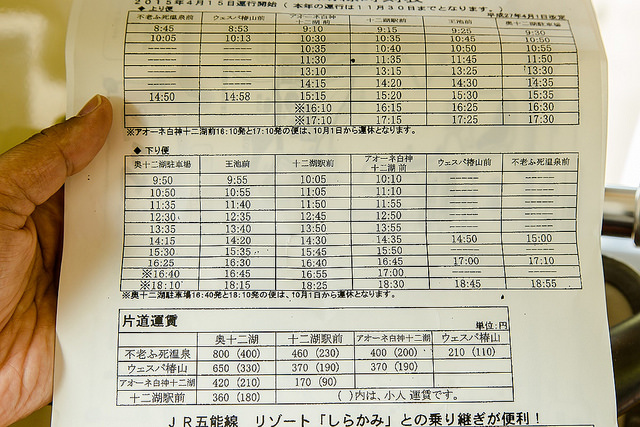 2015年4月15日運行開始 ( 本年の運行は11月30日までとなります。)
平成27年4月1日改定
◆ 上り便
不老ふ死温泉前 ウェスパ椿山前 アオーネ白神十二湖前 十二湖駅前 王池前 奥十二湖駐車場
8:45 8:53 9:10 9:15 9:25 9:30
10:05 10:13 10:30 10:35 10:45 10:50
----- ----- 10:35 10:40 10:50 10:55
----- ----- 11:30 11:35 11:45 11:50
----- ----- 13:10 13:15 13:25 13:30
----- ----- 14:15 14:20 14:30 14:35
14:50 14:58 15:15 15:20 15:30 15:35
※16:10 16:15 16:25 16:30
※17:10 17:15 17:25 17:30
※アオーネ白神十二湖前16:10発と17:10発の便は、10月1日から運休となります。
◆ 下り便
奥十二湖駐車場 王池前 十二湖駅前 アオーネ白神十二湖前 ウェスパ椿山前 不老ふ死温泉前
9:50 9:55 10:05 10:10 ----- -----
10:50 10:55 11:05 11:10 ----- -----
11:35 11:40 11:50 11:55 ----- -----
12:30 12:35 12:45 12:50 ----- -----
13:35 13:40 13:50 13:55 ----- -----
14:15 14:20 14:30 14:35 14:50 15:00
15:30 15:35 15:45 15:50 ----- -----
16:25 16:30 16:40 16:45 17:00 17:10
※16:40 16:45 16:55 17:00 ----- -----
※18:10 18:15 18:25 18:30 18:45 18:55
※奥十二湖駐車場16:40発と18:10発の便は、10月1日から運休となります。
片道運賃
単位:円
奥十二湖 十二湖駅前 アオーネ白神十二湖 ウェスパ椿山
不老ふ死温泉 800 (400) 460 (230) 400 (200) 210 (110)
ウェスパ椿山 650 (330) 370 (190) 370 (190)
アオーネ白神十二湖 420 (210) 170 (90)
十二湖駅前 360 (180) ( )内は、小人 運賃です。
JR五能線 リゾート「しらかみ」との乗り継ぎが便利!